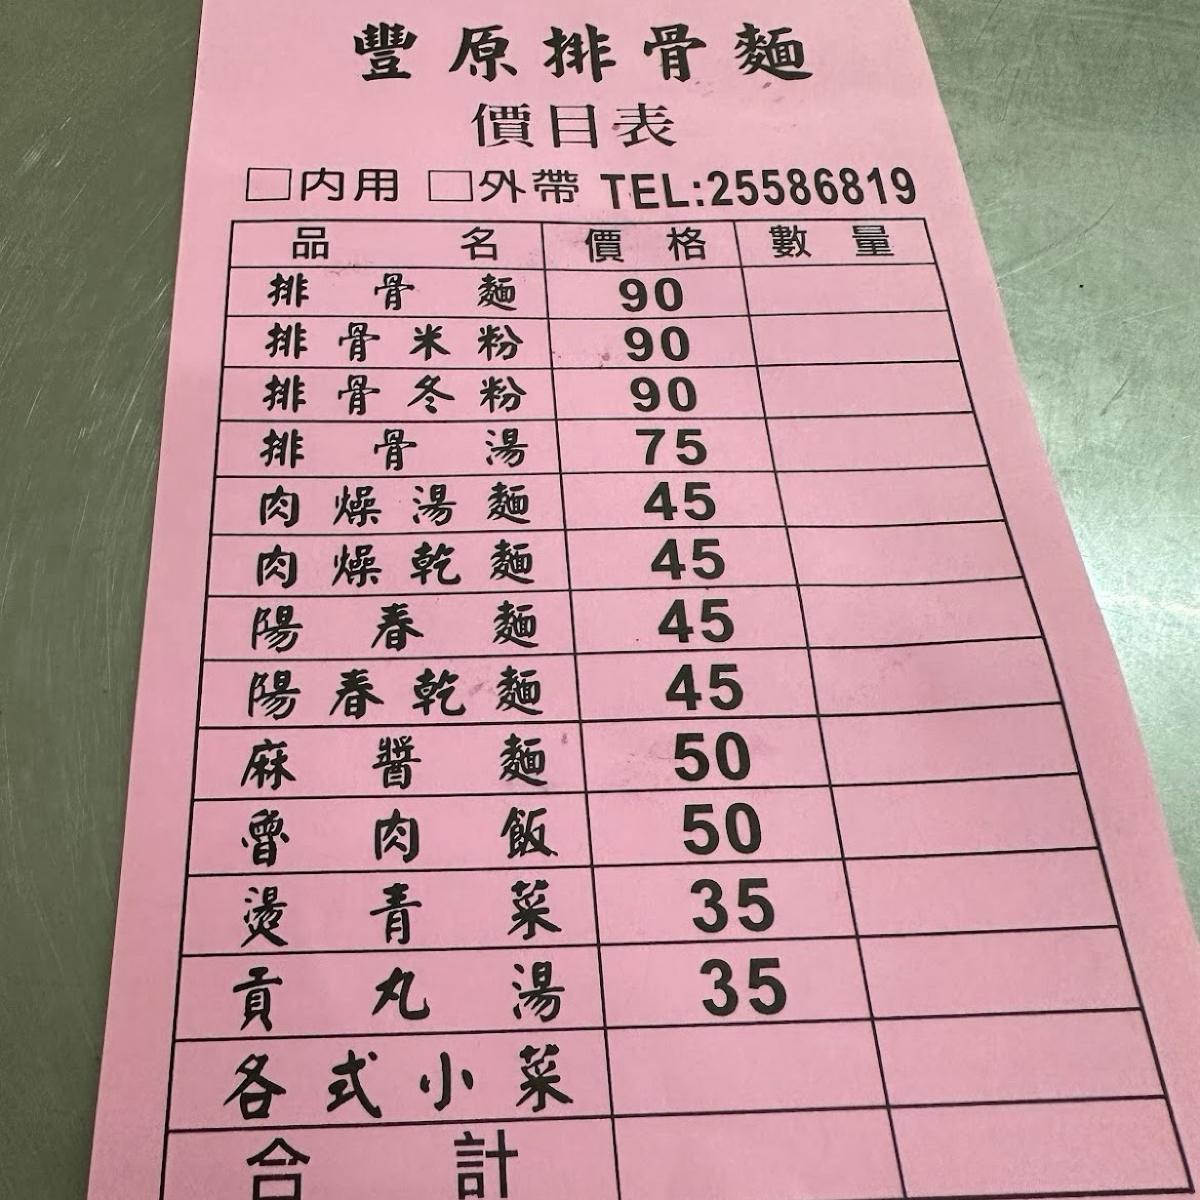 豐原排骨麵
價目表
□內用 □外帶 TEL:25586819
品名 價格 數量
排骨麵 90
排骨米粉 90
排骨冬粉 90
排骨湯 75
肉燥湯麵 45
肉燥乾麵 45
陽春麵 45
陽春乾麵 45
麻醬麵 50
魯肉飯 50
燙青菜 35
貢丸湯 35
各式小菜
合計